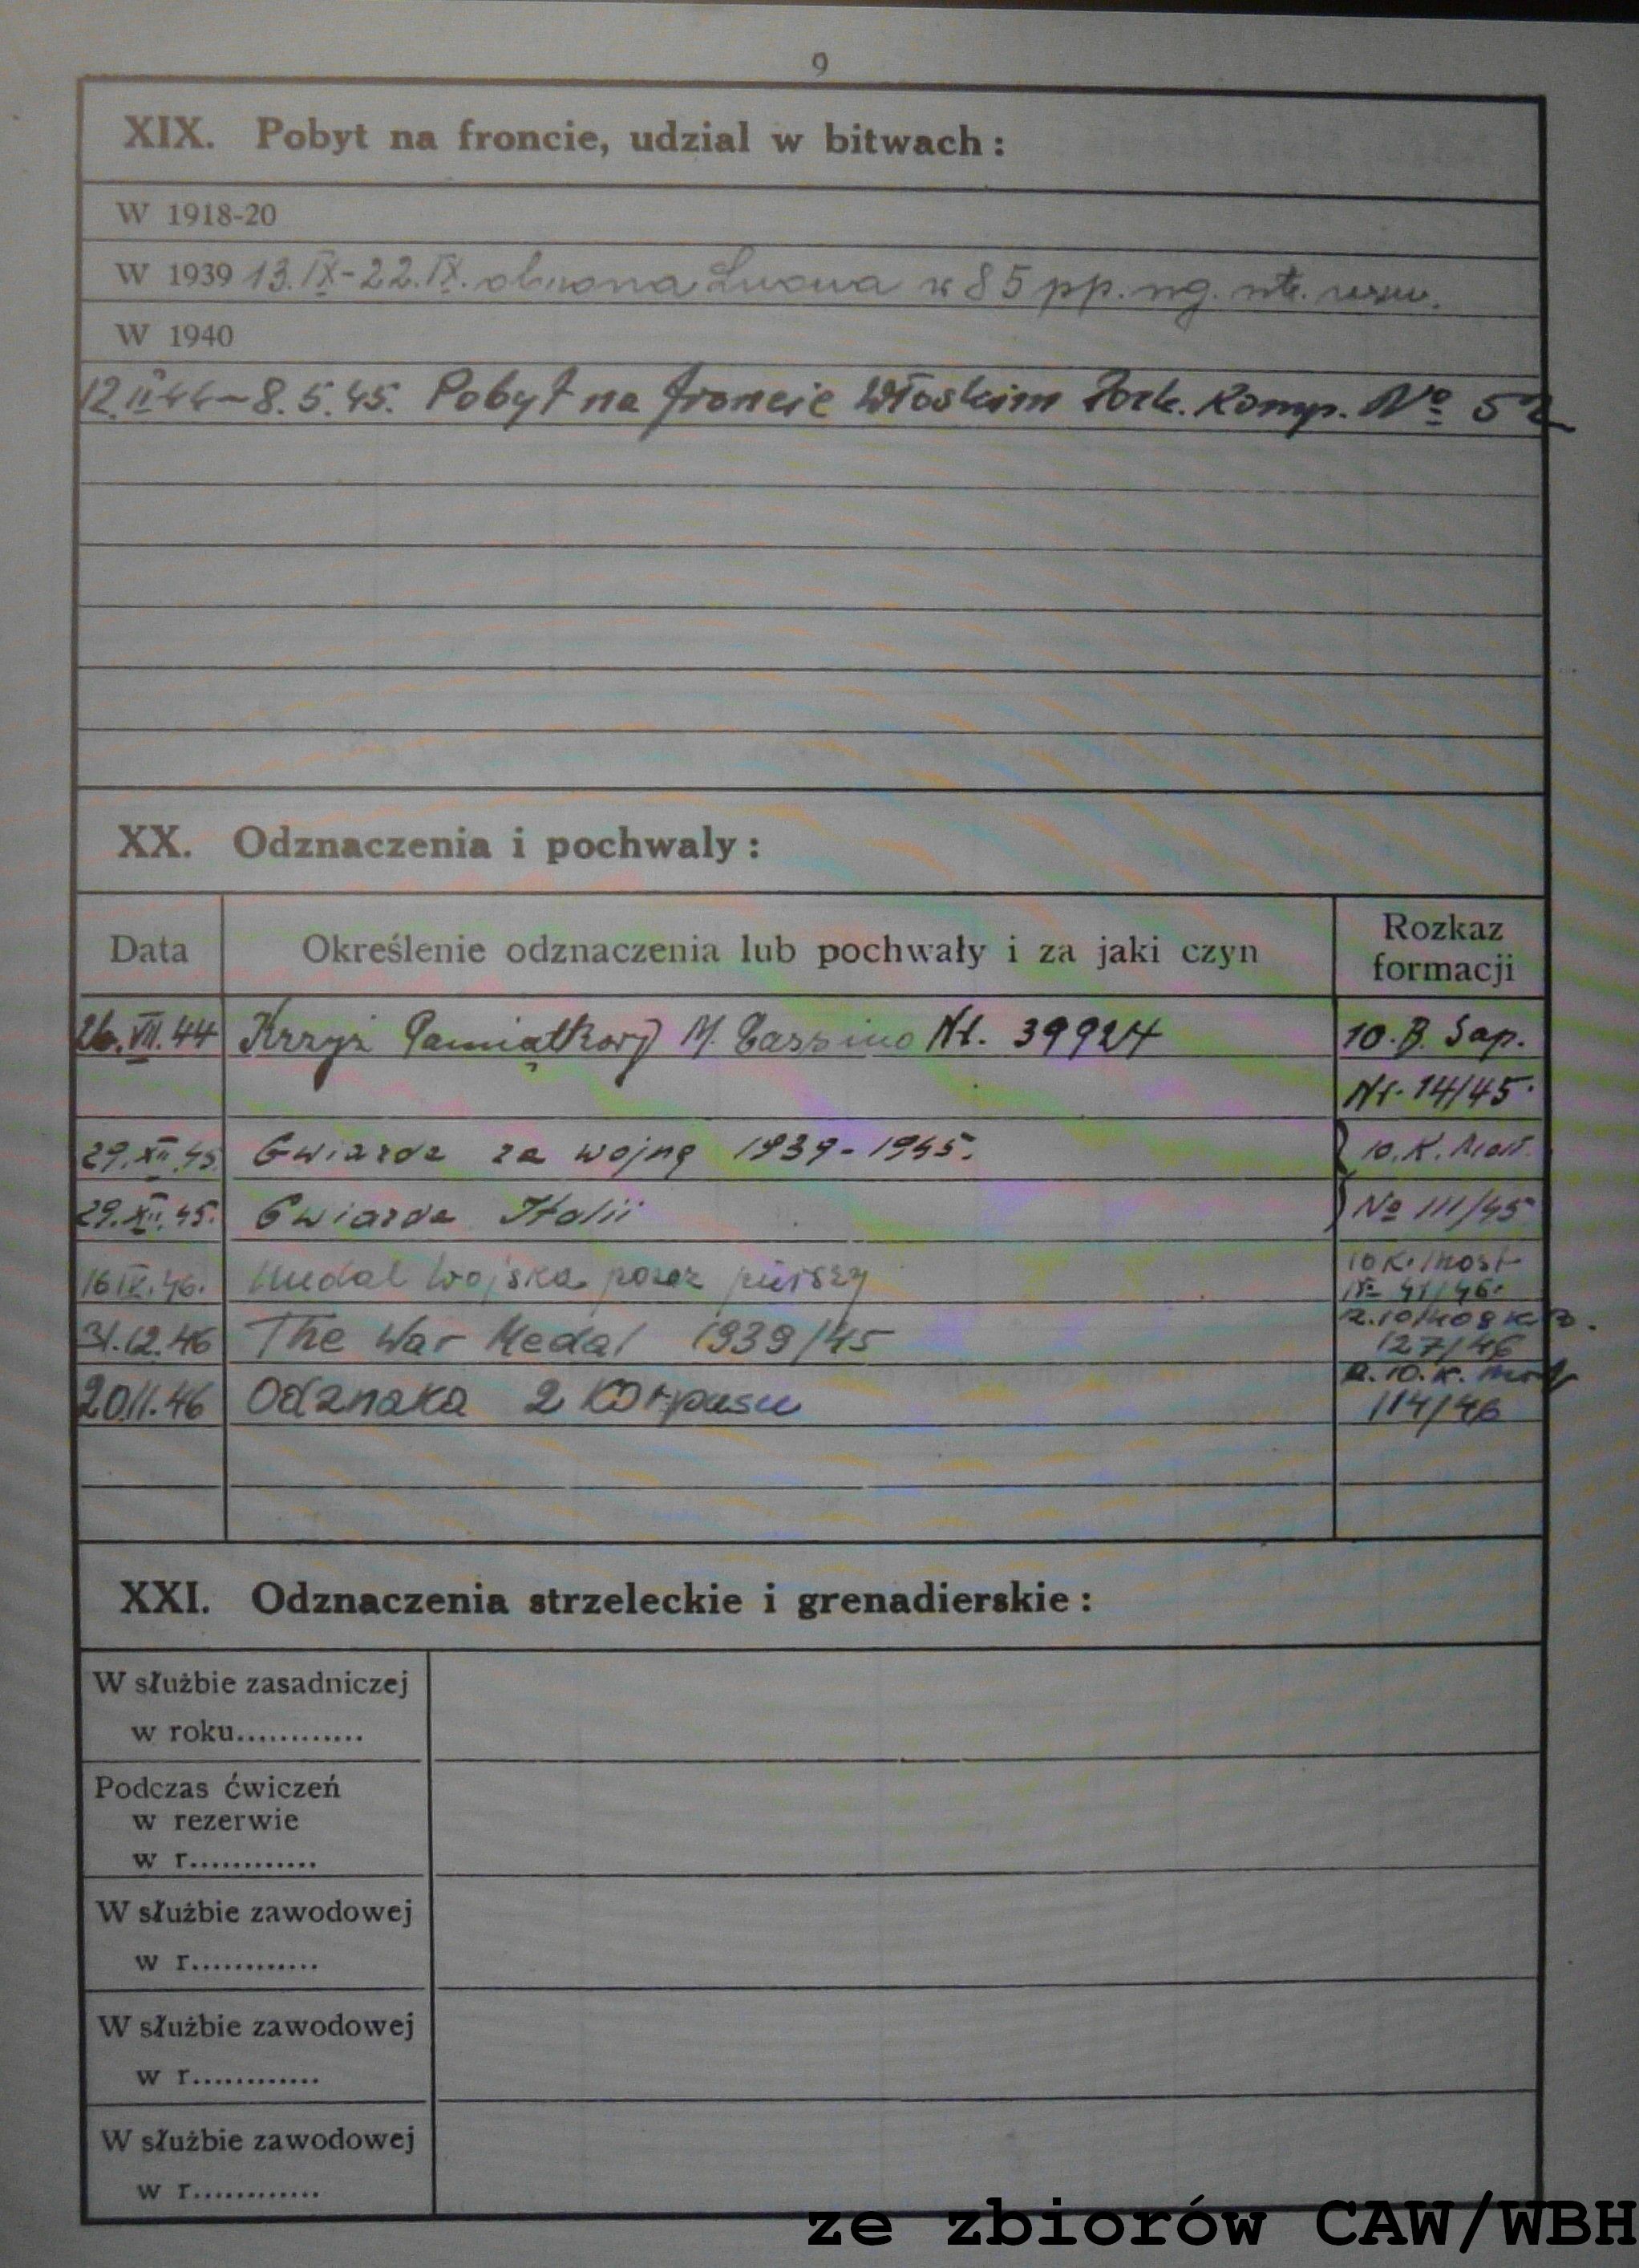 9
XIX. Pobyt na froncie, udzial w bitwach:
W 1918-20
W 1939 13.IX-22.IX. obrona Lwowa w 85 pp.
W 1940
12.II.44-8.5.45. Pobyt na froncie Włoskim Komp. No 52
XX. Odznaczenia i pochwaly:
Data Określenie odznaczenia lub pochwały i za jaki czyn Rozkaz formacji
26.VII.44 Krzyż Pamiątkowy M. Cassino Nr. 39924 10.B. Sap.
Nr. 14/45.
29.XII.45 Gwiazda za wojnę 1939-1945. 10.K. Most.
29.XII.45. Gwiazda Italii No 111/45
16 IV.46. Medal Wojska poraz pierszy 10 K. Most No 41/46.
31.12.46 The War Medal 1939/45 127/46
20.11.46 Odznaka 2 Korpusu R.10.K. Most 114/46
XXI. Odznaczenia strzeleckie i grenadierskie:
W służbie zasadniczej
w roku............
Podczas ćwiczeń
w rezerwie
w r............
W służbie zawodowej
w r............
W służbie zawodowej
w r............
W służbie zawodowej
w r............
ze zbiorów CAW/WBH